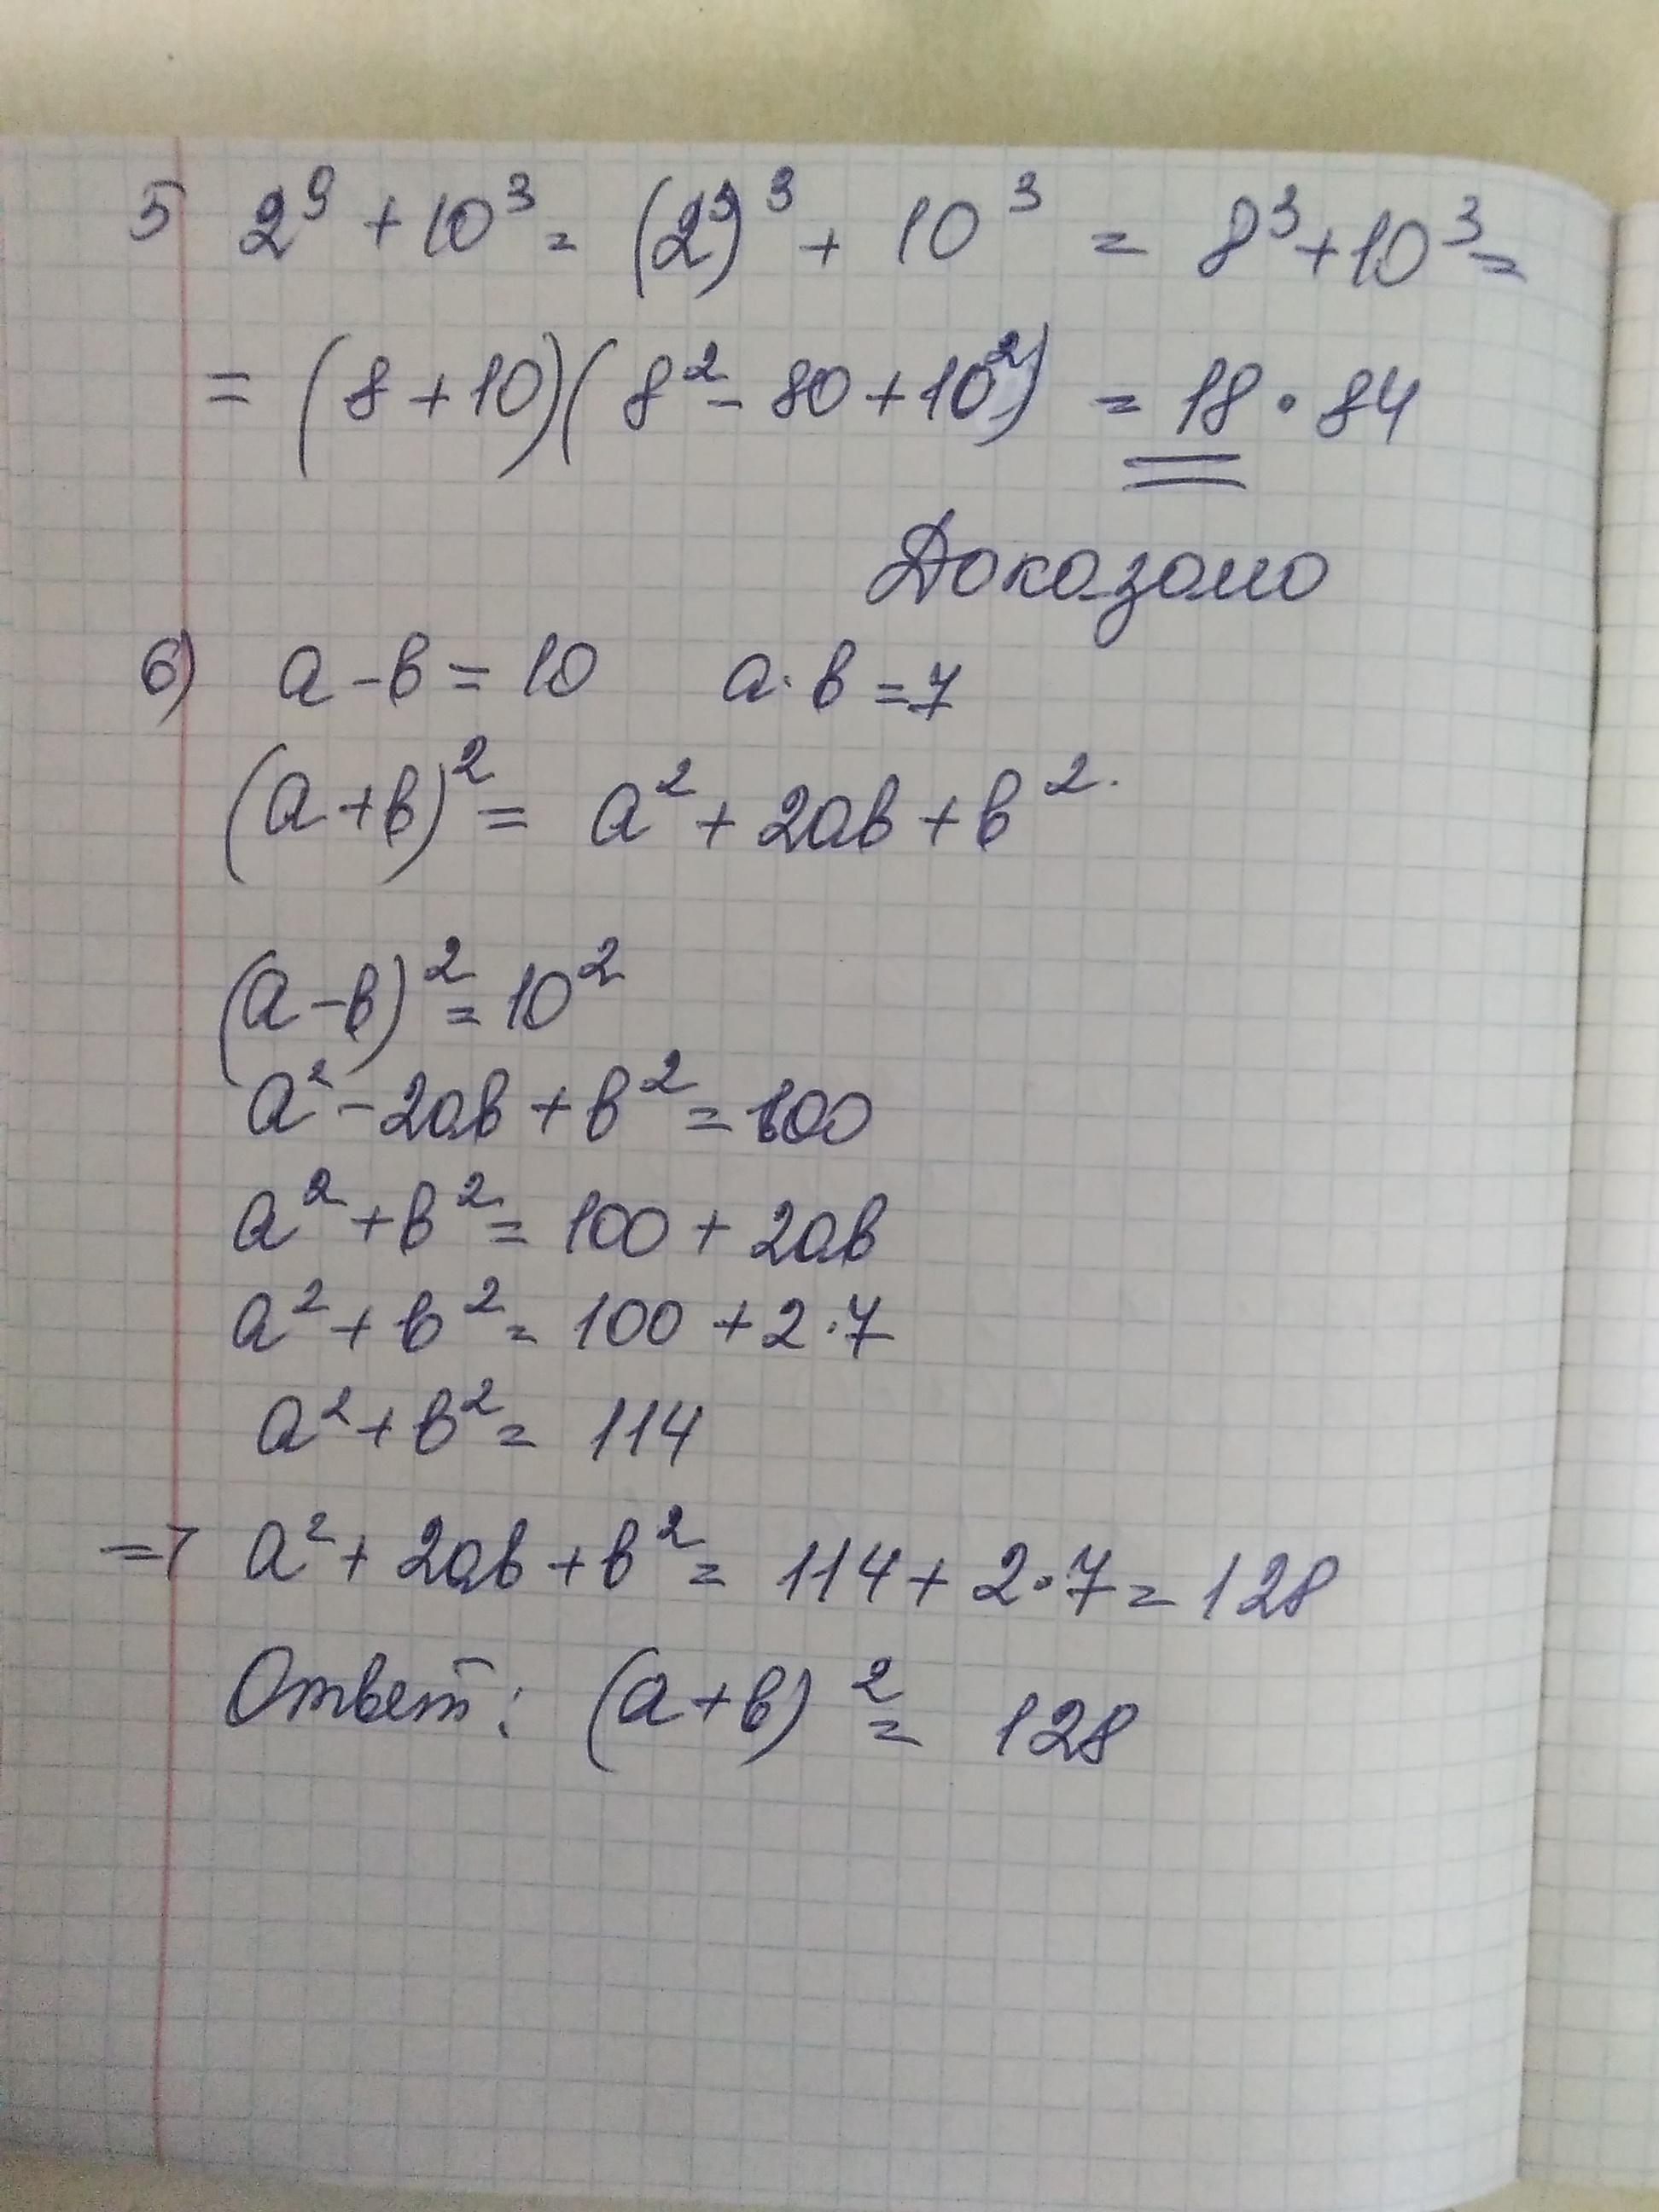 5 2⁹ + 10³ = (2³)³ + 10³ = 8³ + 10³ =
= (8 + 10)(8² - 80 + 10²) = 18 · 84
Доказано
6) a - b = 10 a · b = 7
(a + b)² = a² + 2ab + b².
(a - b)² = 10²
a² - 2ab + b² = 100
a² + b² = 100 + 2ab
a² + b² = 100 + 2 · 7
a² + b² = 114
=> a² + 2ab + b² = 114 + 2 · 7 = 128
Ответ: (a + b)² = 128